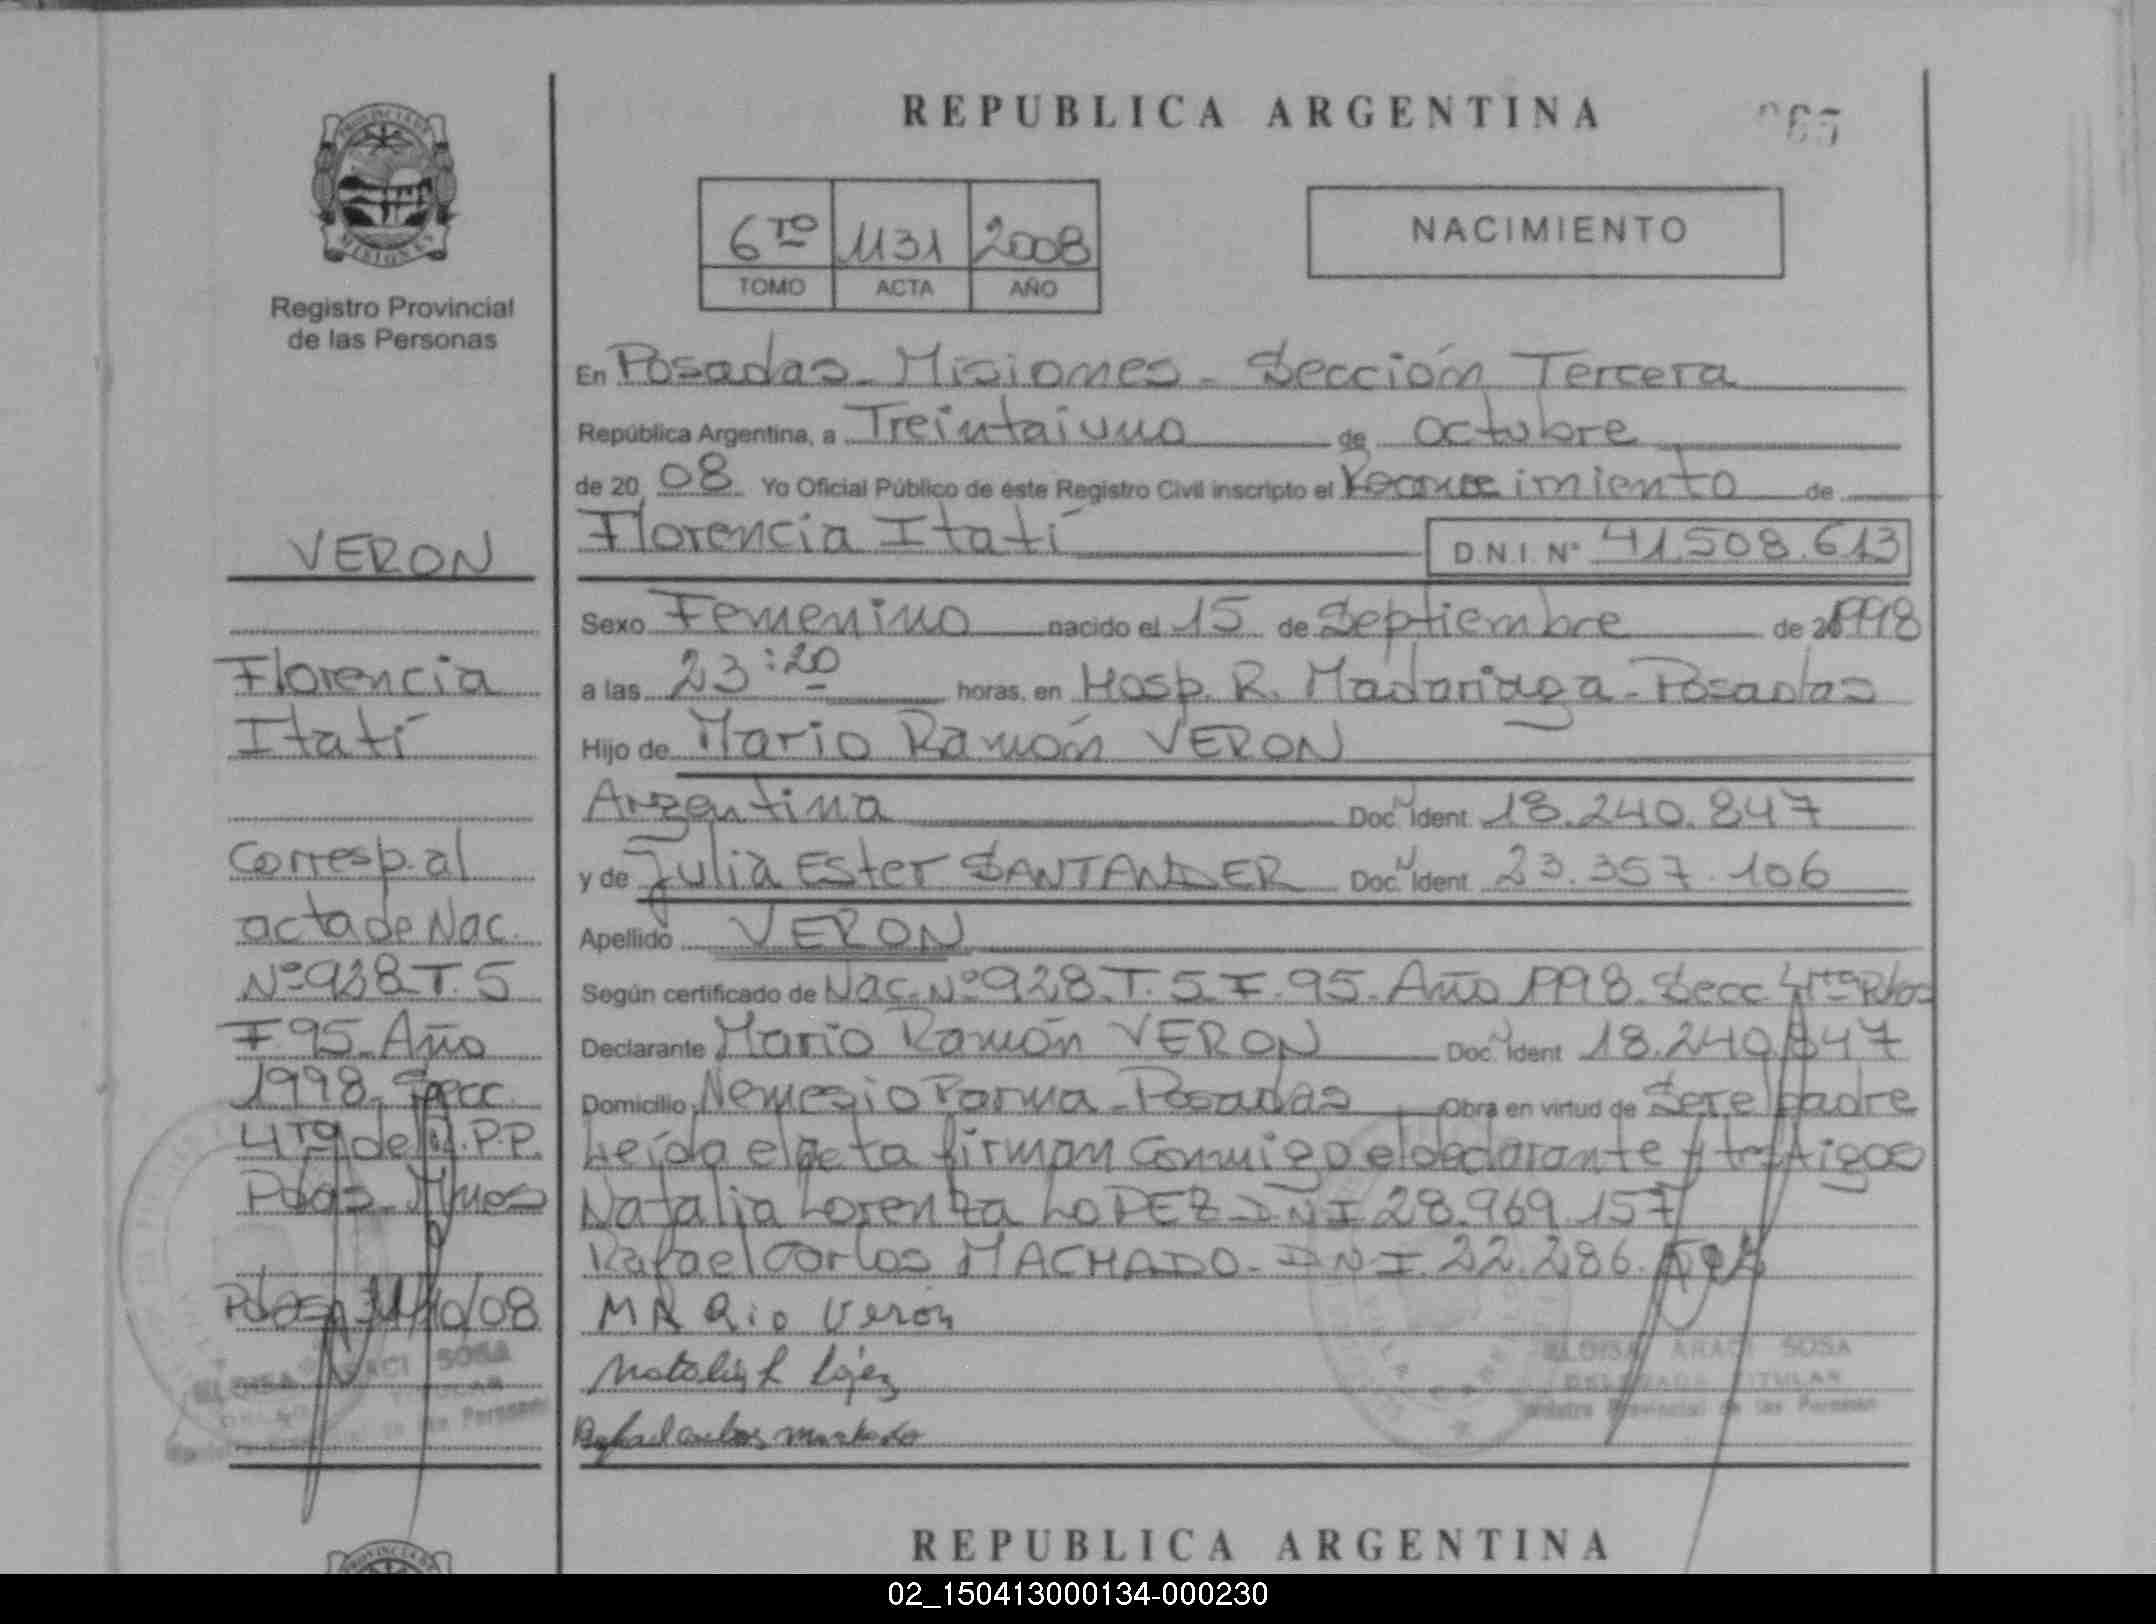 REPUBLICA ARGENTINA
6TO 1131 2008
TOMO ACTA AÑO
NACIMIENTO
Registro Provincial
de las Personas
En Posadas - Misiones - Sección Tercera
República Argentina, a Treintaiuno de octubre
de 20 08 Yo Oficial Público de éste Registro Civil inscripto el Reconocimiento de
Florencia Itatí D.N.I. Nº 41.508.613
Sexo Femenino nacido el 15 de Septiembre de 1998
a las 23:20 horas, en Hosp. R. Madariaga - Posadas
Hijo de Mario Ramón VERON
Argentina Doc. Ident. 18.240.847
y de Julia Ester SANTANDER Doc. Ident. 23.357.106
Apellido VERON
Según certificado de Nac. Nº 928. T. 5. F. 95. Año 1998. Secc 4ta Pdas
Declarante Mario Ramón VERON Doc. Ident 18.240.847
Domicilio Nemesio Parma - Posadas Obra en virtud de Ser el padre
Leída el acta firman conmigo el declarante y testigos
Natalia Lorenza LOPEZ DNI 28.969.157
Rafael Carlos MACHADO - DNI. 22.286.
MARio Verón
Natalia L López
Rafael carlos machado
ELOISA ARACI SOSA
DELEGADA TITULAR
Registro Provincial de las Personas
VERON
Florencia
Itatí
Corresp. al
acta de Nac.
Nº 928 T. 5
F 95. Año
1998. Secc
4ta del R.P.P.
Pdas. Mnes
Pdas, 31/10/08
ELOISA ARACI SOSA
TITULAR
de las Personas
REPUBLICA ARGENTINA
02_150413000134-000230